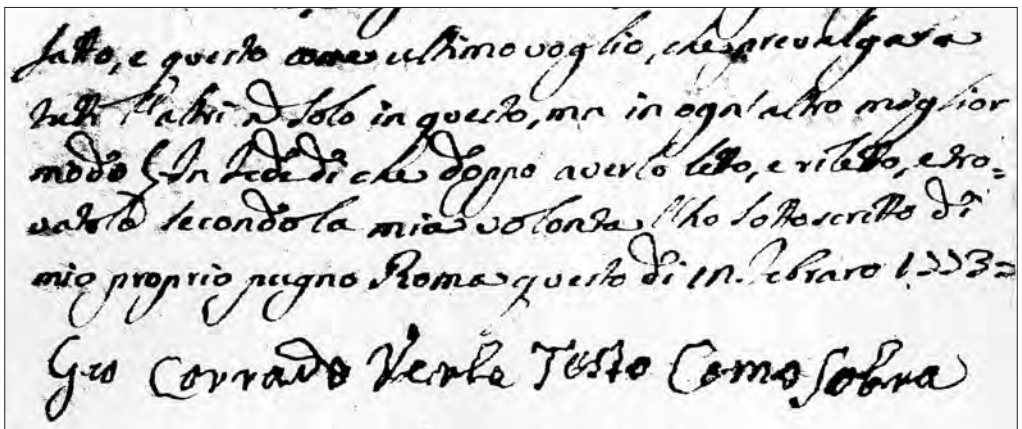 fatto, e questo come ultimo voglio, che prevalga a
tutti gl'altri nō solo in questo, ma in ogn'altro miglior
modo In fede di che doppo averlo letto, e riletto, e tro=
vatolo secondo la mia volontà l'ho sottoscritto di
mio proprio pugno Roma questo di febraro 1753=
Gio Corrado Verle Testo Como Sobra